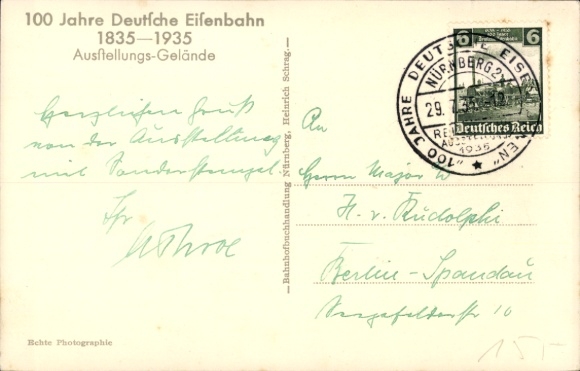 100 Jahre Deutsche Eisenbahn
1835—1935
Ausstellungs-Gelände
Herzlichen Gruß
von der Ausstellung
mit Sonderstempel.
Ihr
Echte Photographie
—Bahnhofbuchhandlung Nürnberg, Heinrich Schrag.—
6 6
Deutsches Reich
"100 JAHRE DEUTSCHE EISENBAHNEN"
NÜRNBERG 2
29. 7. 35
1935
An
Herrn Major
H. v. Rudolphi
Berlin-Spandau
Seegefelderstr 10
15,-